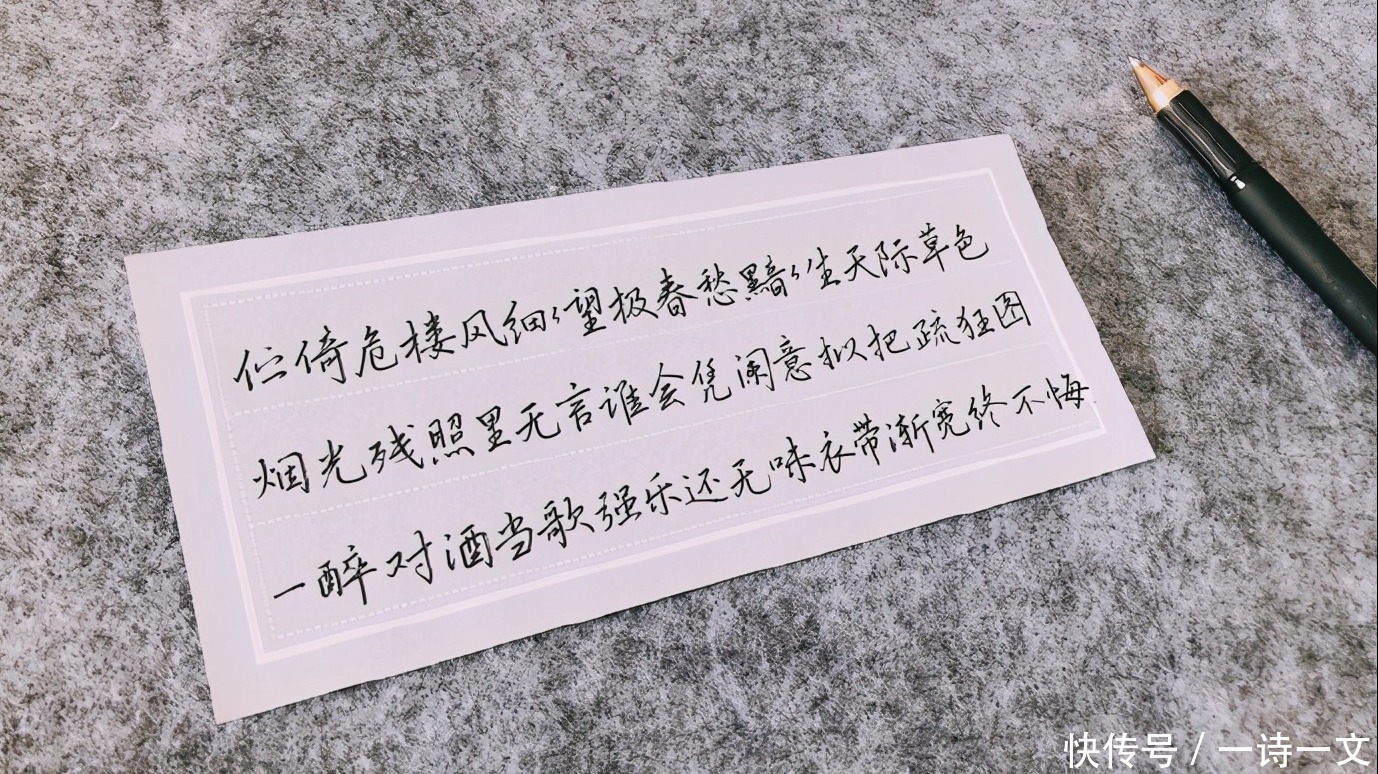 伫倚危楼风细〻望极春愁黯〻生天际草色
烟光残照里无言谁会凭阑意拟把疏狂图
一醉对酒当歌强乐还无味衣带渐宽终不悔
快传号 / 一诗一文